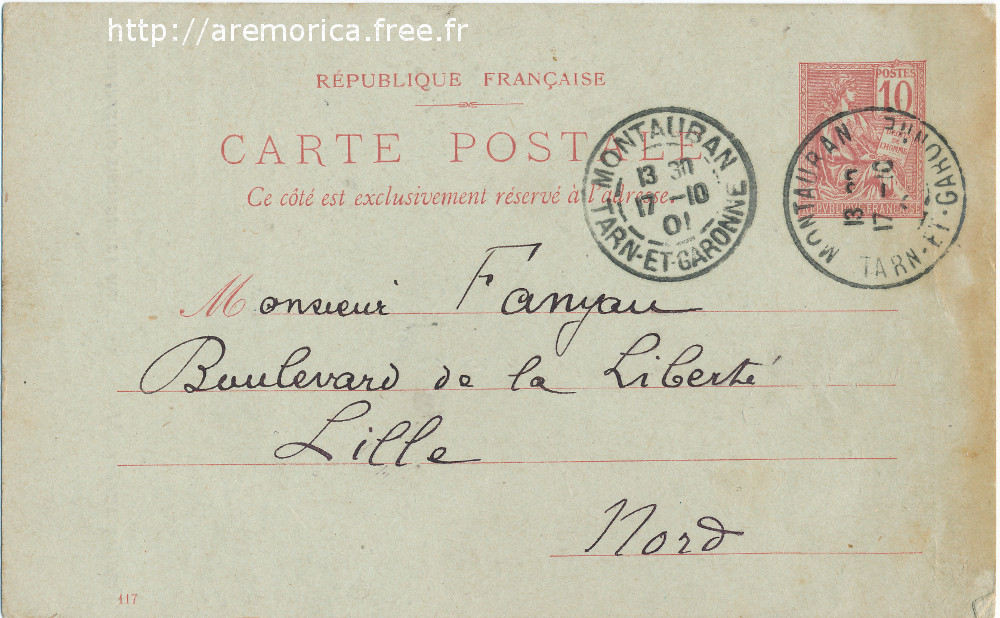 http://aremorica.free.fr
RÉPUBLIQUE FRANÇAISE
POSTES
10
DROITS
DE
L'HOMME
RÉPUBLIQUE FRANÇAISE
CARTE POSTALE
Ce côté est exclusivement réservé à l'adresse.
MONTAUBAN
13 30
17 -10
01
TARN-ET-GARONNE
MONTAUBAN
13
17 -10
TARN-ET-GARONNE
Monsieur Fanyau
Boulevard de la Liberté
Lille
Nord
417